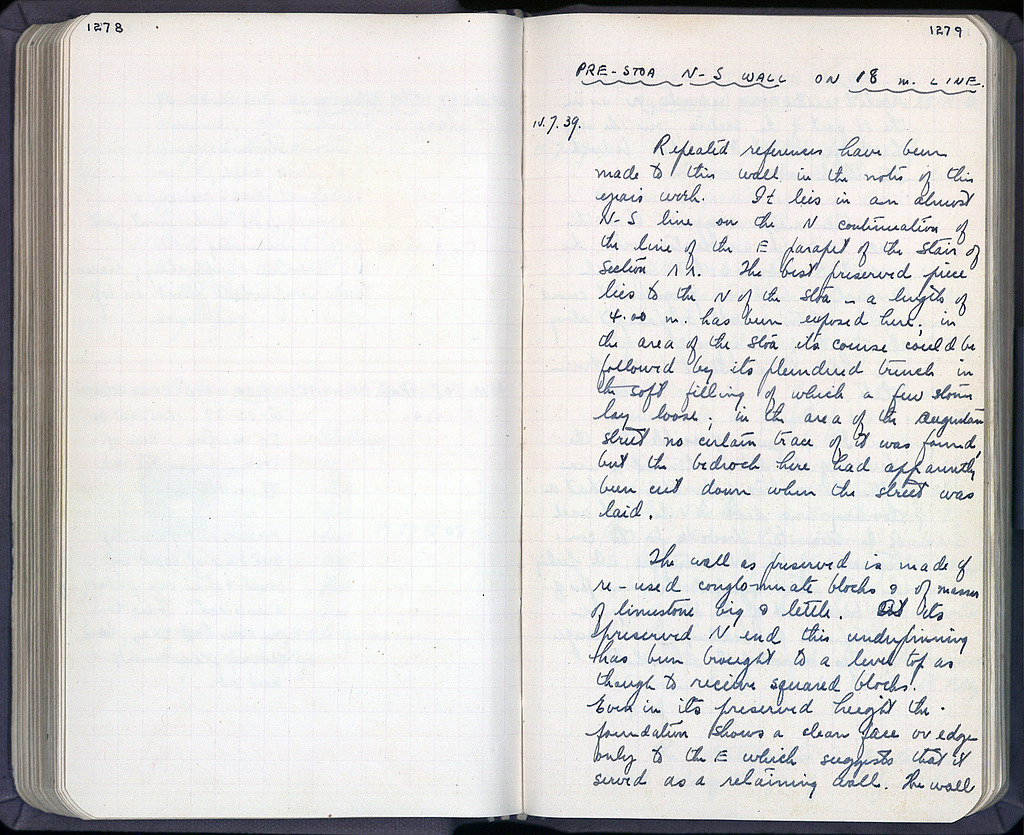 1278
1279
PRE-STOA N-S WALL ON 18 m. LINE.
IV.7.39.
Repeated references have been
made to this wall in the notes of this
year's work. It lies in an almost
N-S line on the N continuation of
the line of the E parapet of the stair of
Section
The best preserved piece
lies to the N of the Stoa - a length of
4.00 m. has been exposed here; in
the area of the Stoa its course could be
followed by its plundered trench in
the soft filling of which a few stones
lay loose; in the area of the Augustan
street no certain trace of it was found,
but the bedrock here had apparently
been cut down when the street was
laid.
The wall as preserved is made of
re-used conglomerate blocks & of masses
of limestone big & little. At its
preserved N end this underpinning
has been brought to a level top as
though to receive squared blocks.
Even in its preserved height the
foundation shows a clean face or edge
only to the E which suggests that it
served as a retaining wall. The wall